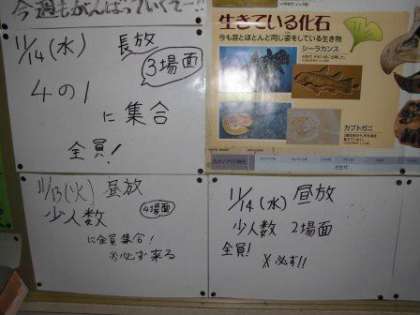 今週もがんばっていくでー!!
11/14(水) 長放
3場面
4の1
に集合
全員!
生きている化石
今も昔とほとんど同じ姿をしている生き物
シーラカンス
カブトガニ
11/13(火) 昼放
少人数 4場面
に全員集合!
必ず来る
11/14(水) 昼放
少人数 2場面
全員!
必ず!!